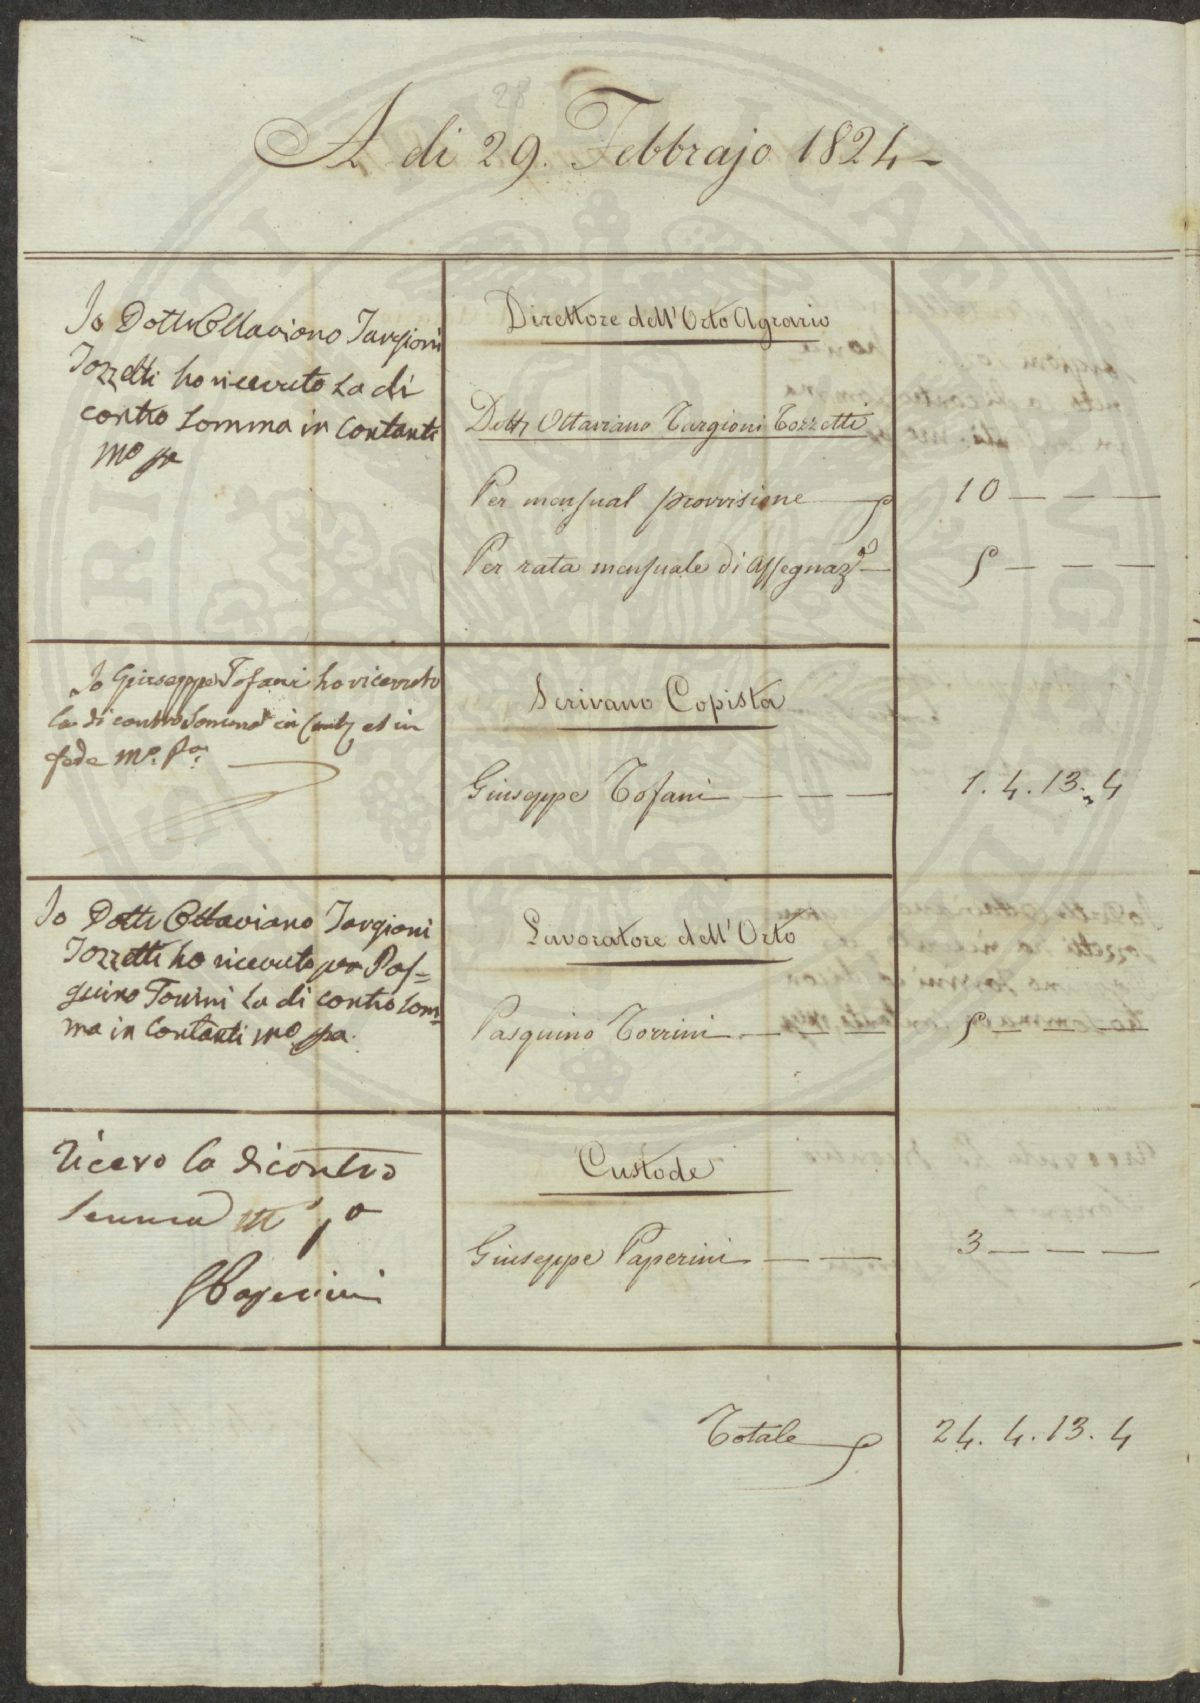 28
A di 29. Febbrajo 1824
Io Dottr Ottaviano Targioni
Tozzetti ho ricevuto la di
contro Somma in Contanti
mo pa
Direttore dell'Orto Agrario
Dottr Ottaviano Targioni Tozzetti
Per mensual provvisione
10 — — —
Per rata mensuale di Assegnaz.e
5 — — —
Io Giuseppe Tofani ho ricevuto
la di contro Somma in Conti et in
fede mo. Pa.
Scrivano Copista
Giuseppe Tofani — — —
1. 4. 13. 4
Io Dottr Ottaviano Targioni
Tozzetti ho ricevuto per Pas=
quino Torrini la di contro Som=
ma in Contanti mo pa.
Lavoratore dell'Orto
Pasquino Torrini — — —
5 — — —
Ricevo la dicontro
Somma m po
GPaperini
Custode
Giuseppe Paperini — —
3 — — —
Totale
24. 4. 13. 4